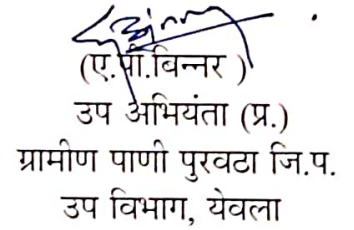 (ए.पी.बिन्नर )
उप अभियंता (प्र.)
ग्रामीण पाणी पुरवठा जि.प.
उप विभाग, येवला